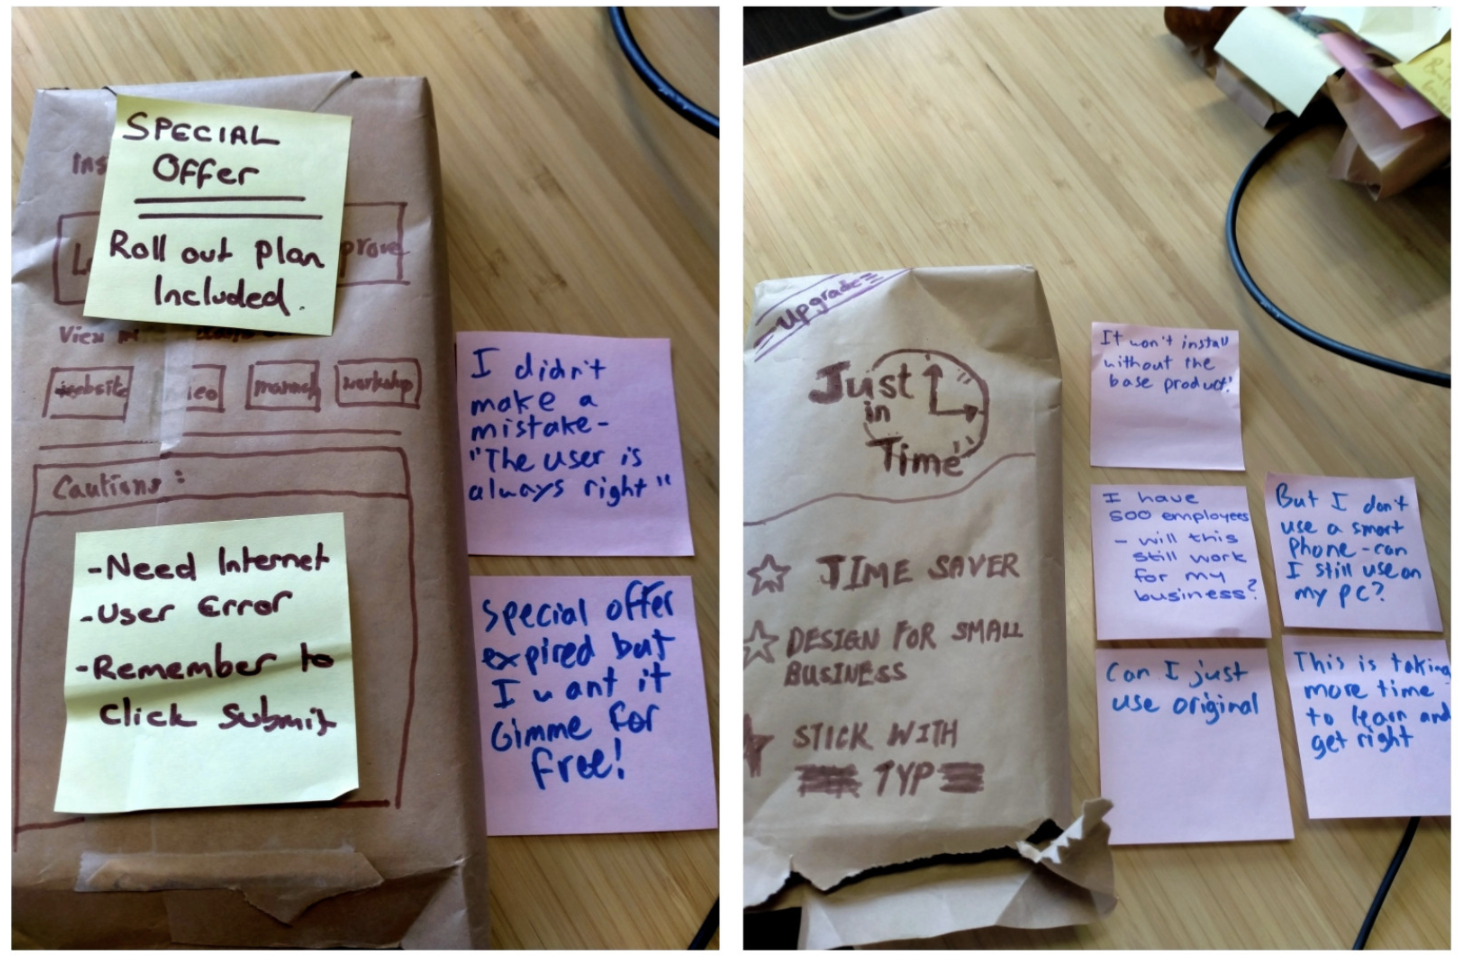 SPECIAL
Offer
Roll out plan
Included.
Ins
prove
View
website
workshop
Cautions:
-Need Internet
-User Error
-Remember to
Click Submit
I didn't
make a
mistake-
"The user is
always right"
Special offer
expired but
I want it
Gimme for
free!
Upgrade
Just
in
Time
TIME SAVER
DESIGN FOR SMALL
BUSINESS
STICK WITH
TYP
It won't install
without the
base product!
I have
500 employees
- will this
still work
for my
business?
But I don't
use a smart
phone-can
I still use on
my pc?
Can I just
use original
This is taking
more time
to learn and
get right